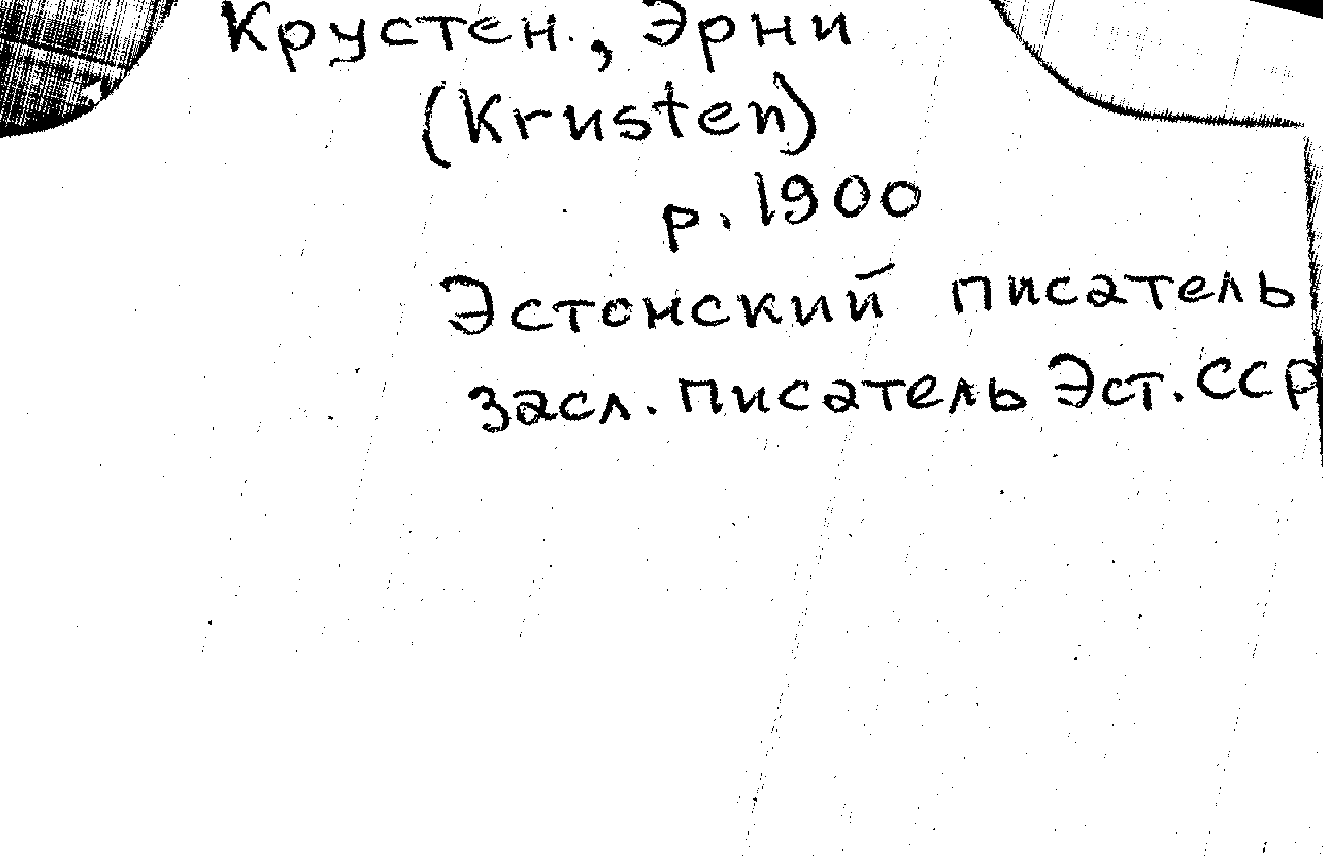 Крустен., Эрни
(Krusten)
р. 1900
Эстонский писатель
засл. писатель Эст. ССР